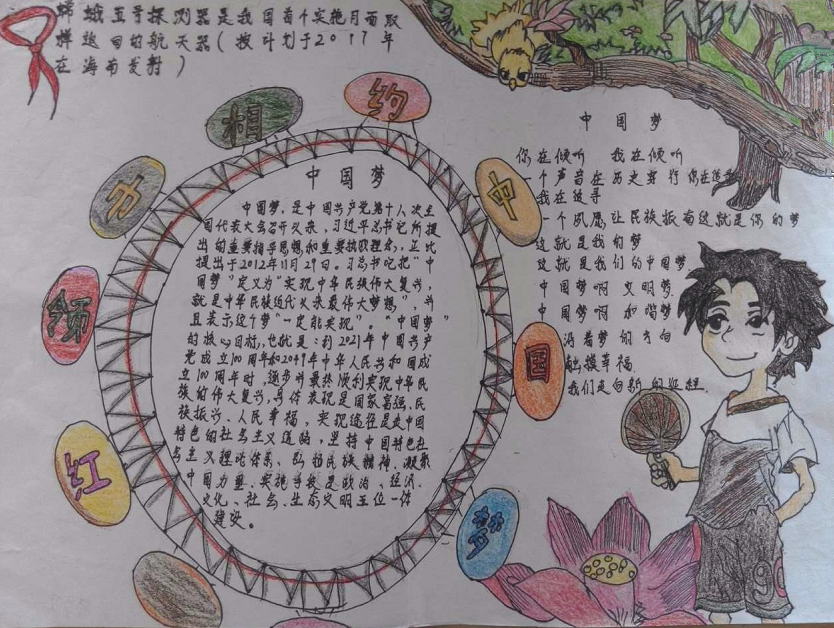 嫦娥五号探测器是我国首个实施月面取
样返回的航天器(按计划于2017年
在海南发射)
红
领
巾
相
约
中
国
梦
中国梦
中国梦,是中国共产党第十八次全
国代表大会召开以来,习近平总书记所提
出的重要指导思想和重要执政理念,正式
提出于2012年11月29日。习总书记把“中
国梦”定义为“实现中华民族伟大复兴,
就是中华民族近代以来最伟大梦想”,并
且表示这个梦“一定能实现”。“中国梦”
的核心目标,也就是:到2021年中国共产
党成立100周年和2049年中华人民共和国成
立100周年时,逐步并最终顺利实现中华民
族的伟大复兴,具体表现是国家富强、民
族振兴、人民幸福,实现途径是走中国
特色的社会主义道路,坚持中国特色社
会主义理论体系、弘扬民族精神、凝聚
中国力量,实施手段是政治、经济、
文化、社会、生态文明五位一体
建设。
中国梦
你在倾听 我在倾听
一个声音在历史穿行 你在追寻
我在追寻
一个夙愿让民族振奋这就是你的梦
这就是我的梦
这就是我们的中国梦
中国梦啊 文明梦
中国梦啊 和谐梦
沿着梦的方向
触摸幸福
我们走向新的征程